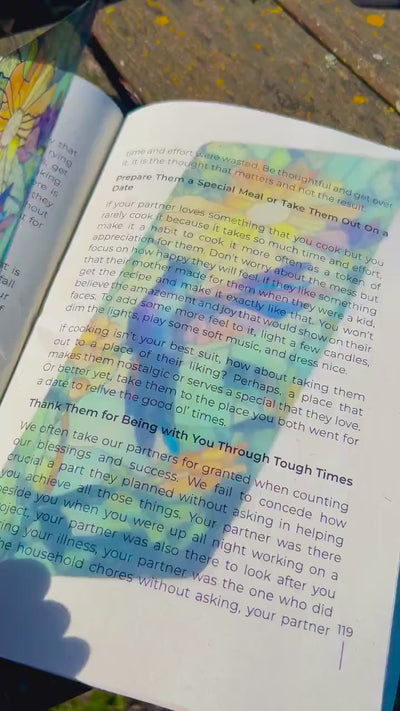 y that
rying
get
king
re is
they
hout
t for
t is
fall
ur
f
time and effort were wasted. Be thoughtful and get over
it, it is the thought that matters and not the result.
Prepare Them a Special Meal or Take Them Out On a
Date
If your partner loves something that you cook but you
rarely cook it because it takes so much time and effort,
make it a habit to cook it more often as a token of
appreciation for them. Don't worry about the mess but
focus on how happy they will feel, if they like something
that their mother made for them when they were a kid,
get the recipe and make it exactly like that. You won't
believe the amazement and joy that would show on their
faces, to add some more feel to it, light a few candles,
dim the lights, play some soft music, and dress nice.
If cooking isn't your best suit, how about taking them
out to a place of their liking? Perhaps, a place that
makes them nostalgic or serves a special that they love.
Or better yet, take them to the place you both went for
a date to relive the good ol' times.
Thank Them for Being with You Through Tough Times
We often take our partners for granted when counting
our blessings and success. We fail to concede how
crucial a part they planned without asking in helping
you achieve all those things. Your partner was there
eside you when you were up all night working on a
oject, your partner was also there to look after you
ring your illness, your partner was the one who did
he household chores without asking, your partner
119